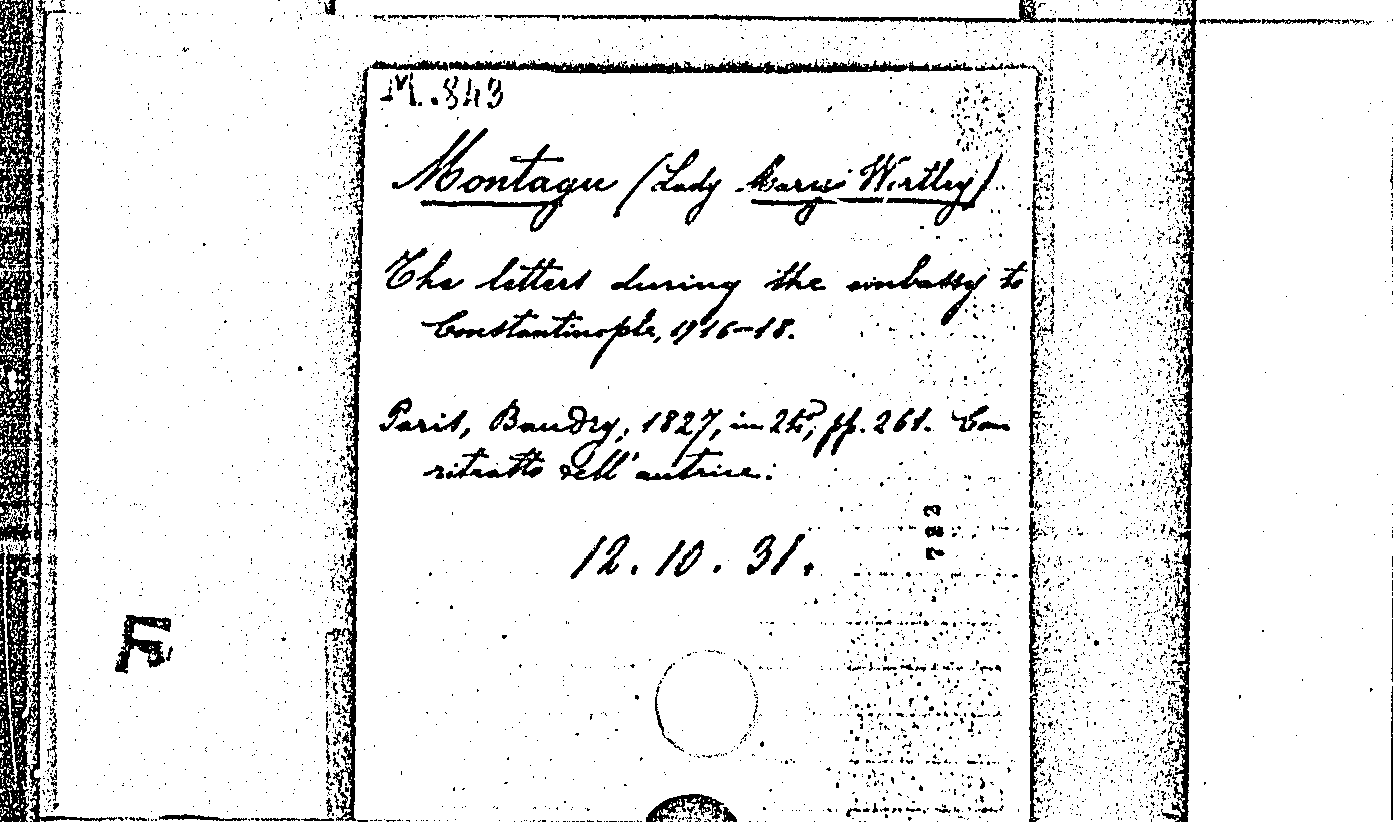 M.843
Montagu (Lady Marie Wortley)
The letters during the embassy to
Constantinople, 1716-18.
Paris, Baudry, 1827, in 24º, pp. 261. Con
ritratto dell'autrice.
12.10.31.
783